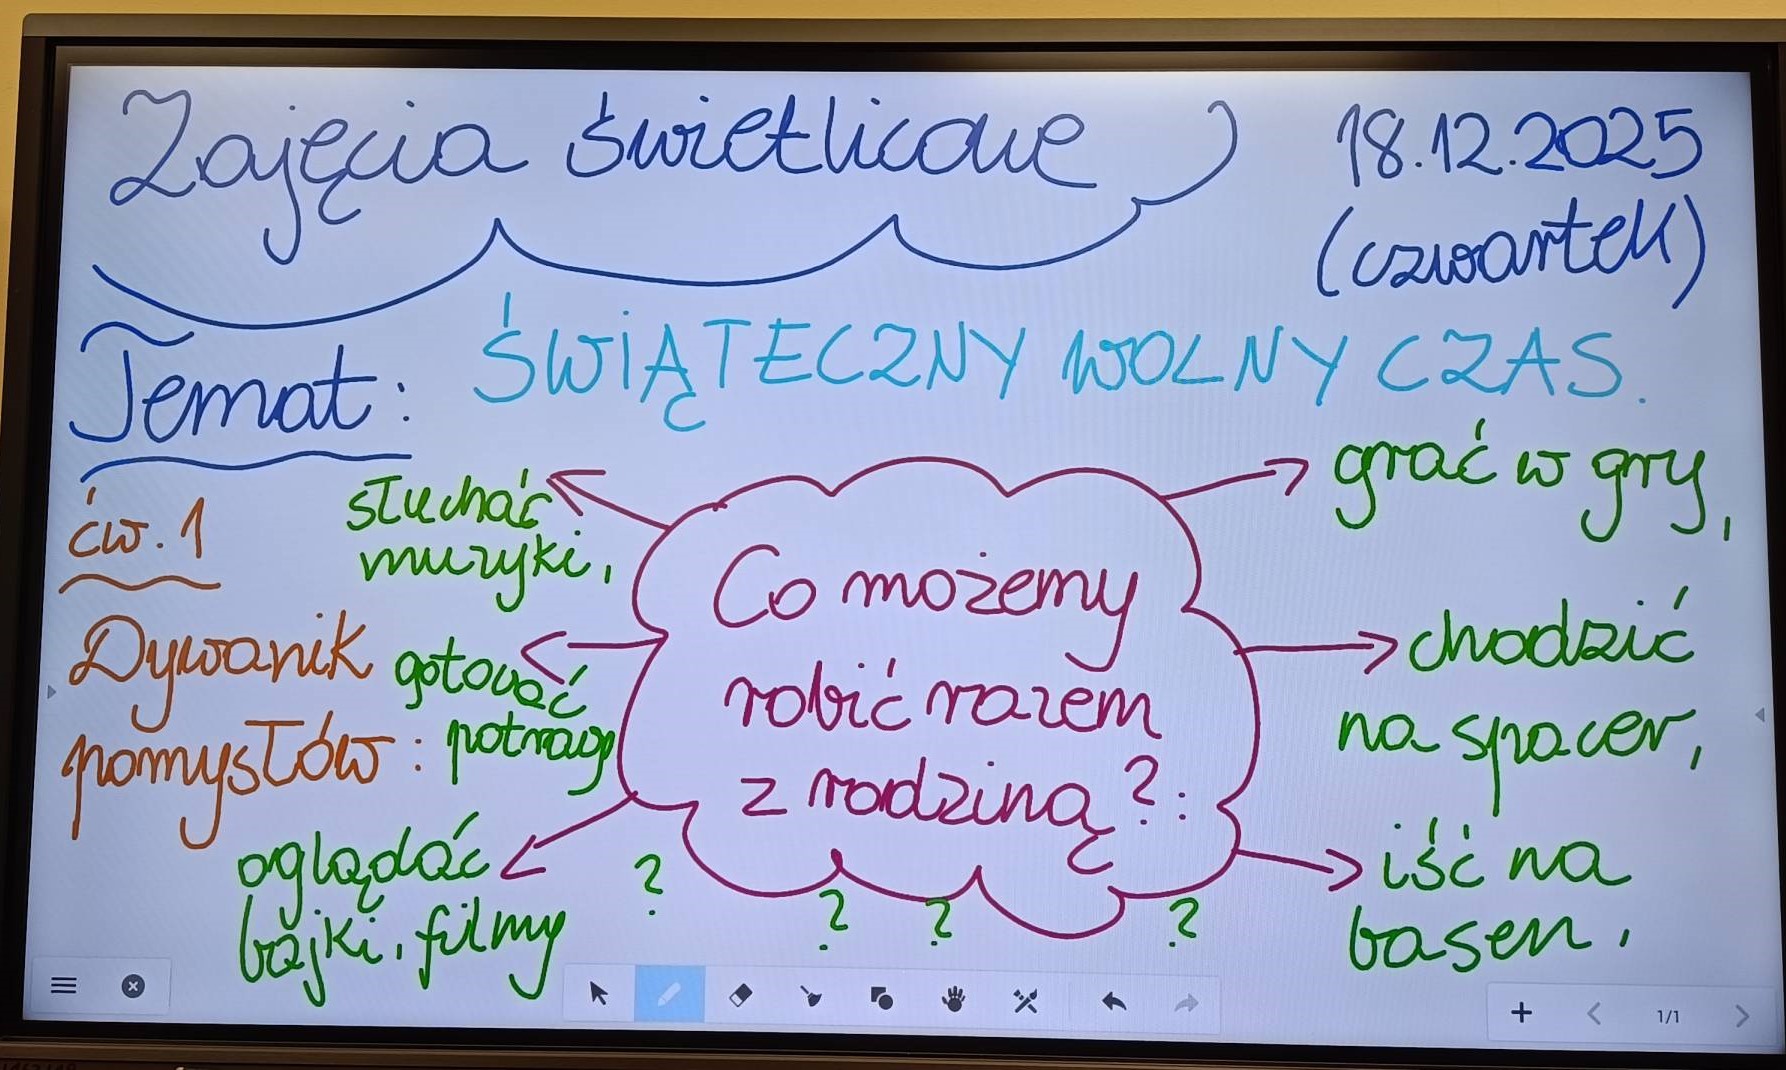 Zajęcia świetlicowe
18.12.2025
(czwartek)
Temat: ŚWIĄTECZNY WOLNY CZAS.
ćw. 1
Dywanik
pomysłów:
Co możemy
robić razem
z rodziną?:
słuchać
muzyki,
gotować
potrawy
oglądać
bajki, filmy
grać w gry,
chodzić
na spacer,
iść na
basen,
? ? ? ?
1/1